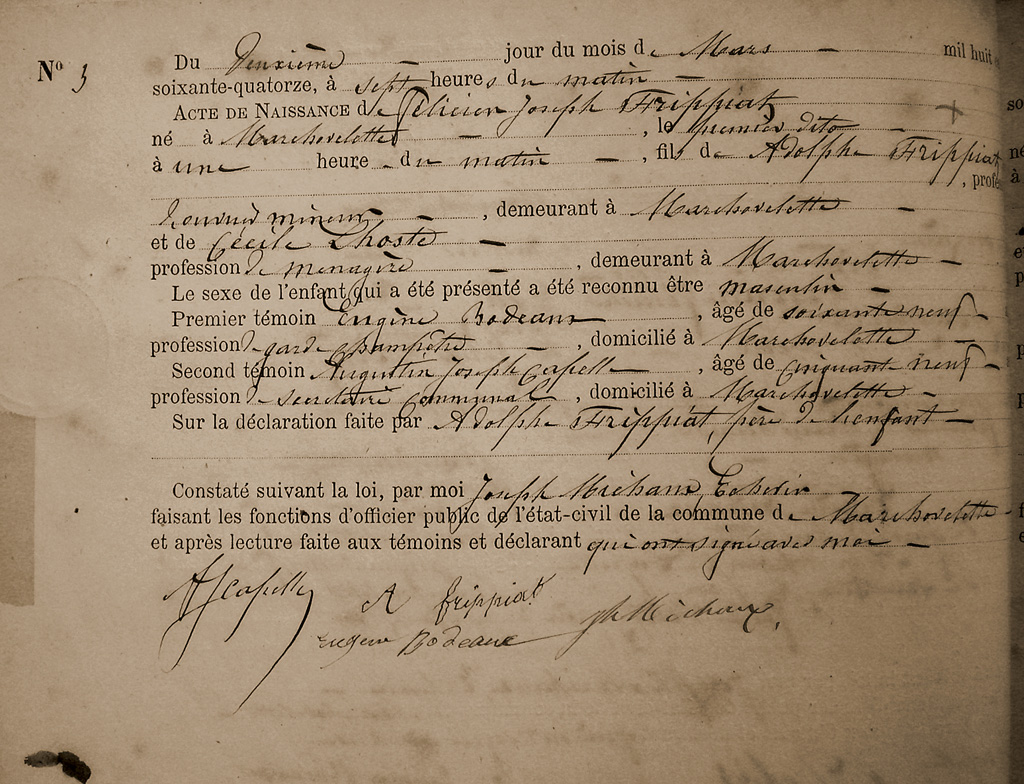 N° 3
Du Deuxième jour du mois de Mars mil huit
soixante-quatorze, à sept heures du matin
ACTE DE NAISSANCE de Félicien Joseph Frippiat
né à Marchovelette, le premier dito
à une heure du matin, fils de Adolphe Frippiat
, prof
ouvrier mineur, demeurant à Marchovelette
et de Cécile Lhoste
profession de ménagère, demeurant à Marchovelette
Le sexe de l'enfant qui a été présenté a été reconnu être masculin
Premier témoin Eugène Bodeaux, âgé de soixante neuf
profession de garde champêtre, domicilié à Marchovelette
Second témoin Augustin Joseph Capelle, âgé de cinquante neuf
profession de secrétaire communal, domicilié à Marchovelette
Sur la déclaration faite par Adolphe Frippiat, père de l'enfant
Constaté suivant la loi, par moi Joseph Michaux, Echevin
faisant les fonctions d'officier public de l'état-civil de la commune de Marchovelette
et après lecture faite aux témoins et déclarant qui ont signé avec moi
AJ Capelle
A frippiat
Eugene Bodeaux
Jh Michaux.